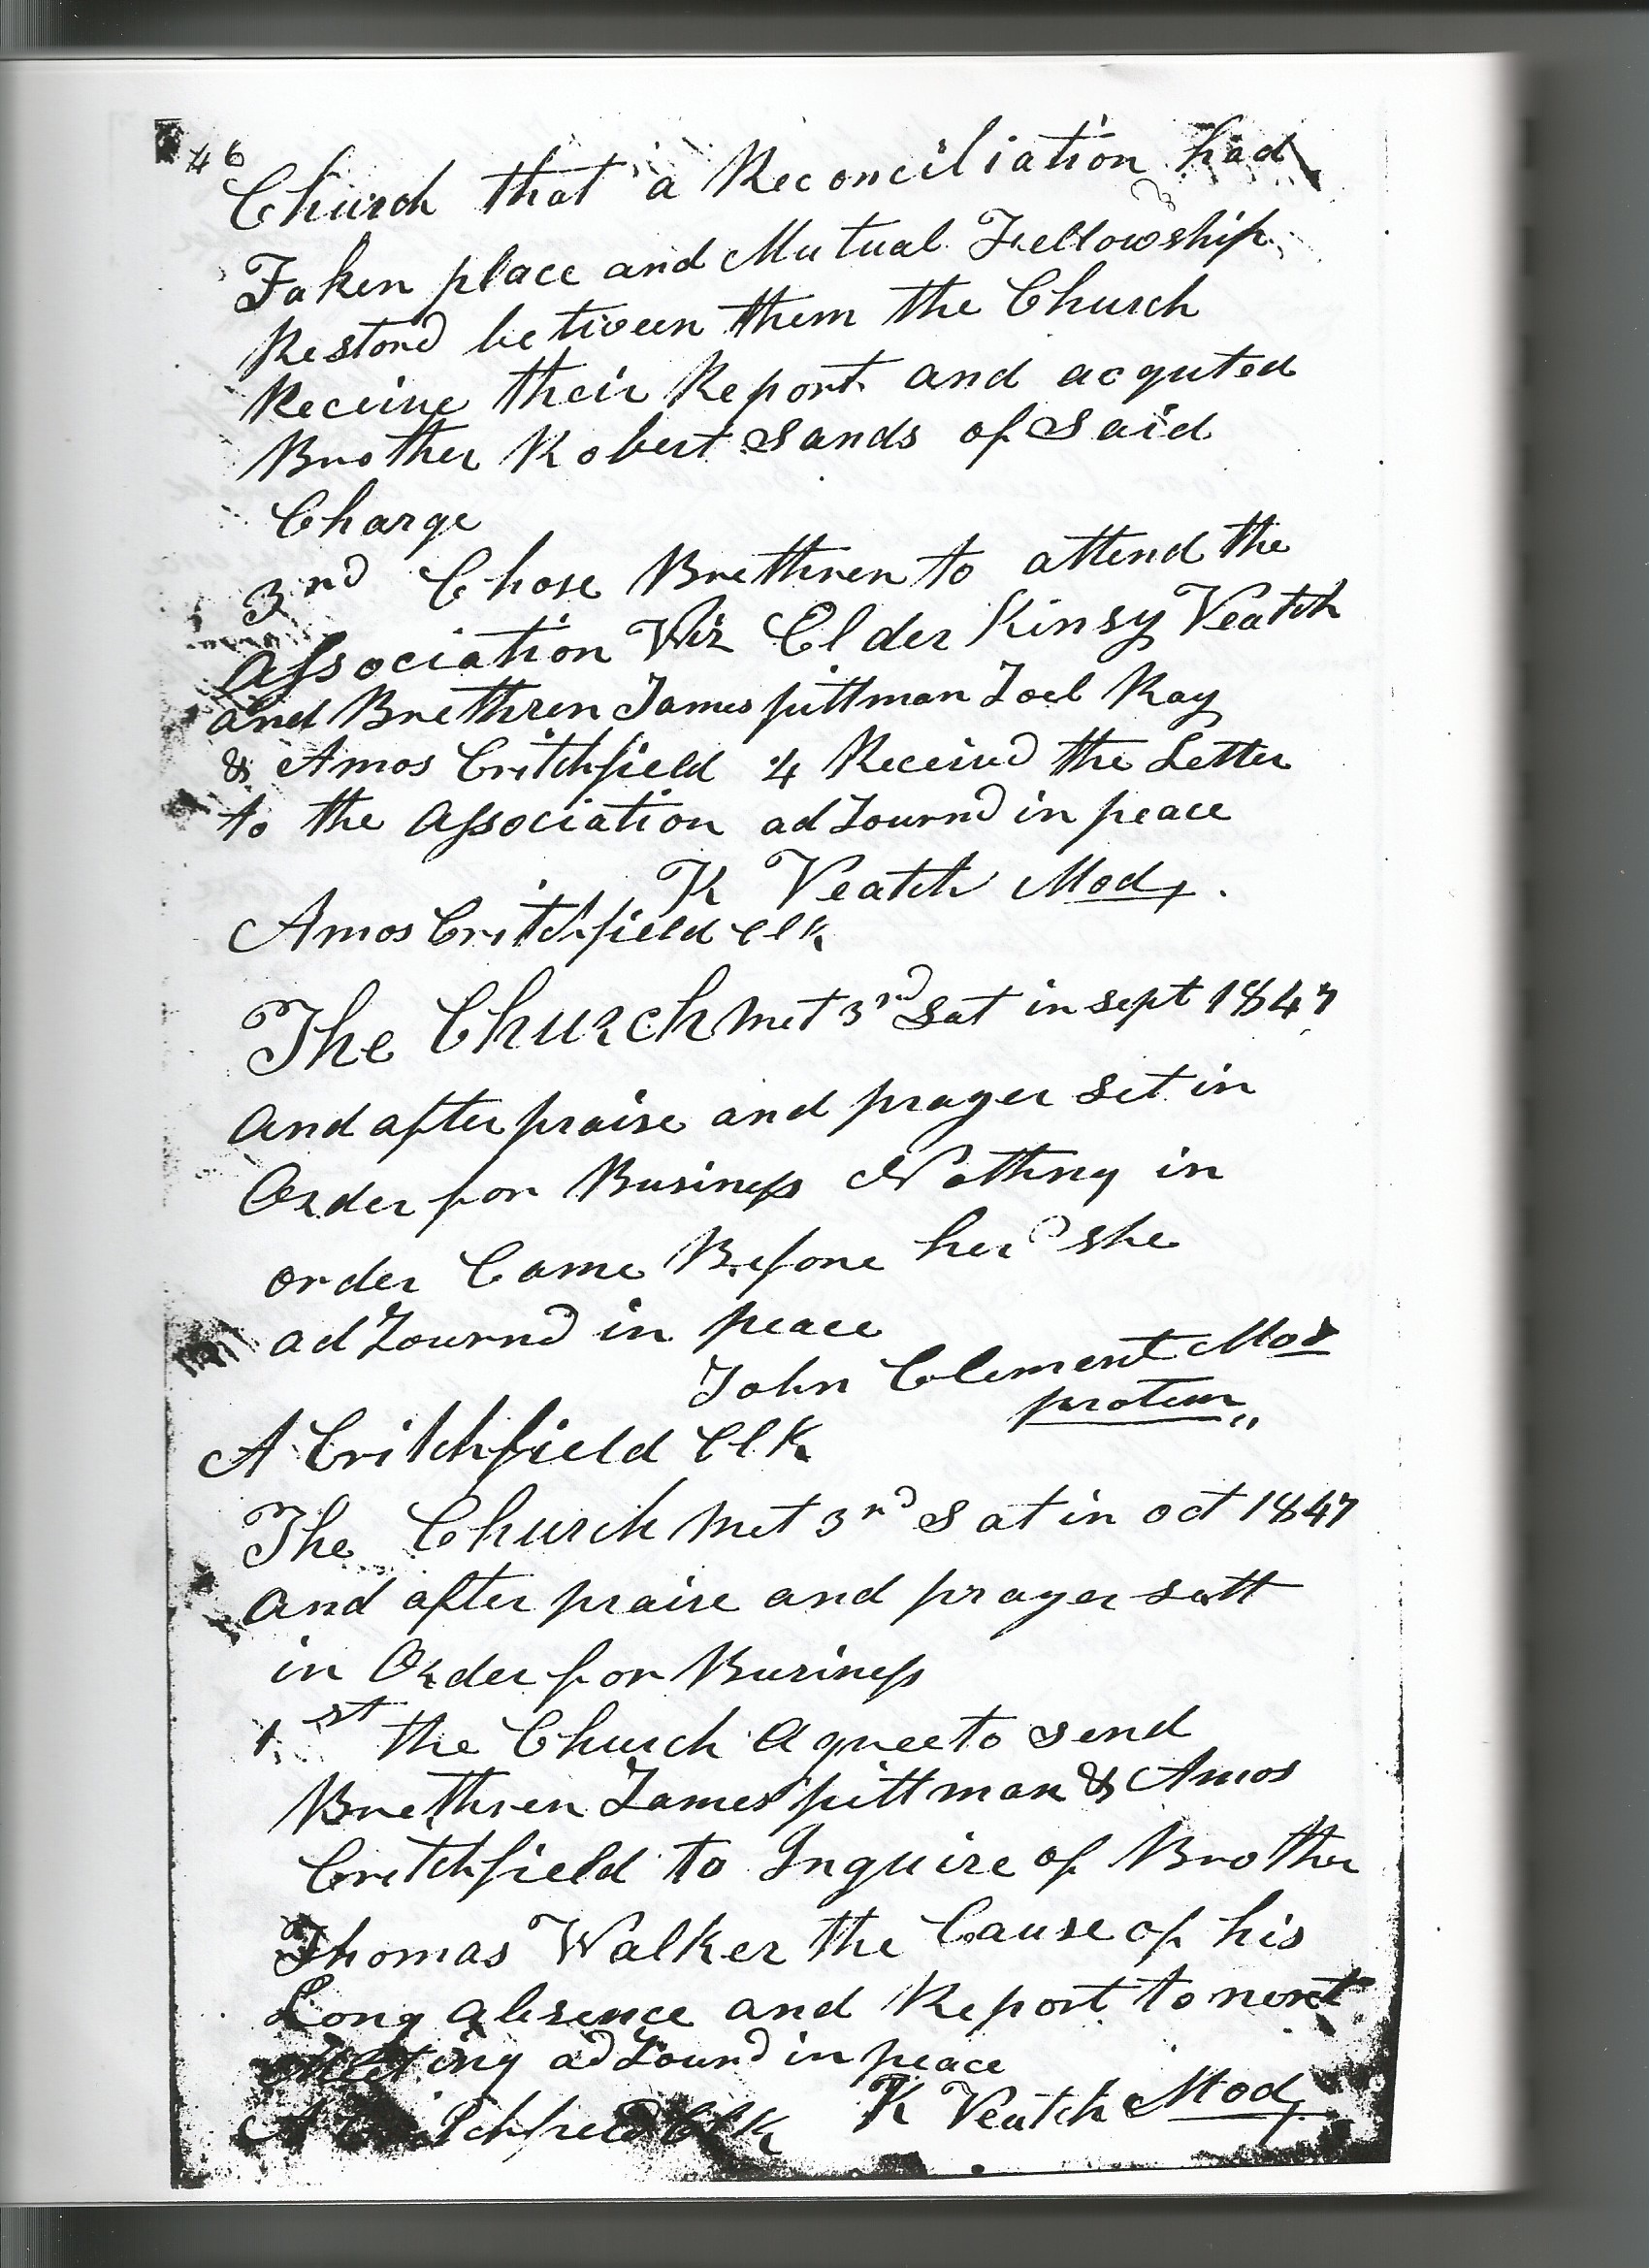 46
Church that a Reconciliation had
Taken place and Mutual Fellowship
Restord between them the Church
Receive their Report and acquted
Brother Robert Sands of Said
Charge
3rd Chose Brethren to attend the
Association Viz Elder Kinsy Veatch
and Brethren James pittman Joel Ray
& Amos Critchfield 4 Receivd the Letter
to the Association adJournd in peace
K Veatch Mod
Amos Critchfield Clk
The Church met 3rd Sat in sept 1847
And after praise and prayer set in
Order for Business Nothing in
order Came Before her she
adJournd in peace
John Clement Mod
protem
A Critchfield Clk
The Church met 3rd Sat in oct 1847
And after praise and prayer sett
in Order for Business
1st the Church Agree to send
Brethren James pittman & Amos
Critchfield to Inquire of Brother
Thomas Walker the Cause of his
Long absence and Report to next
Meeting adJournd in peace
K Veatch Mod
A Critchfield Clk